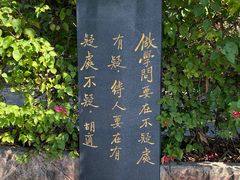 做學問要在不疑處
有疑，待人要在有
疑處不疑。胡適